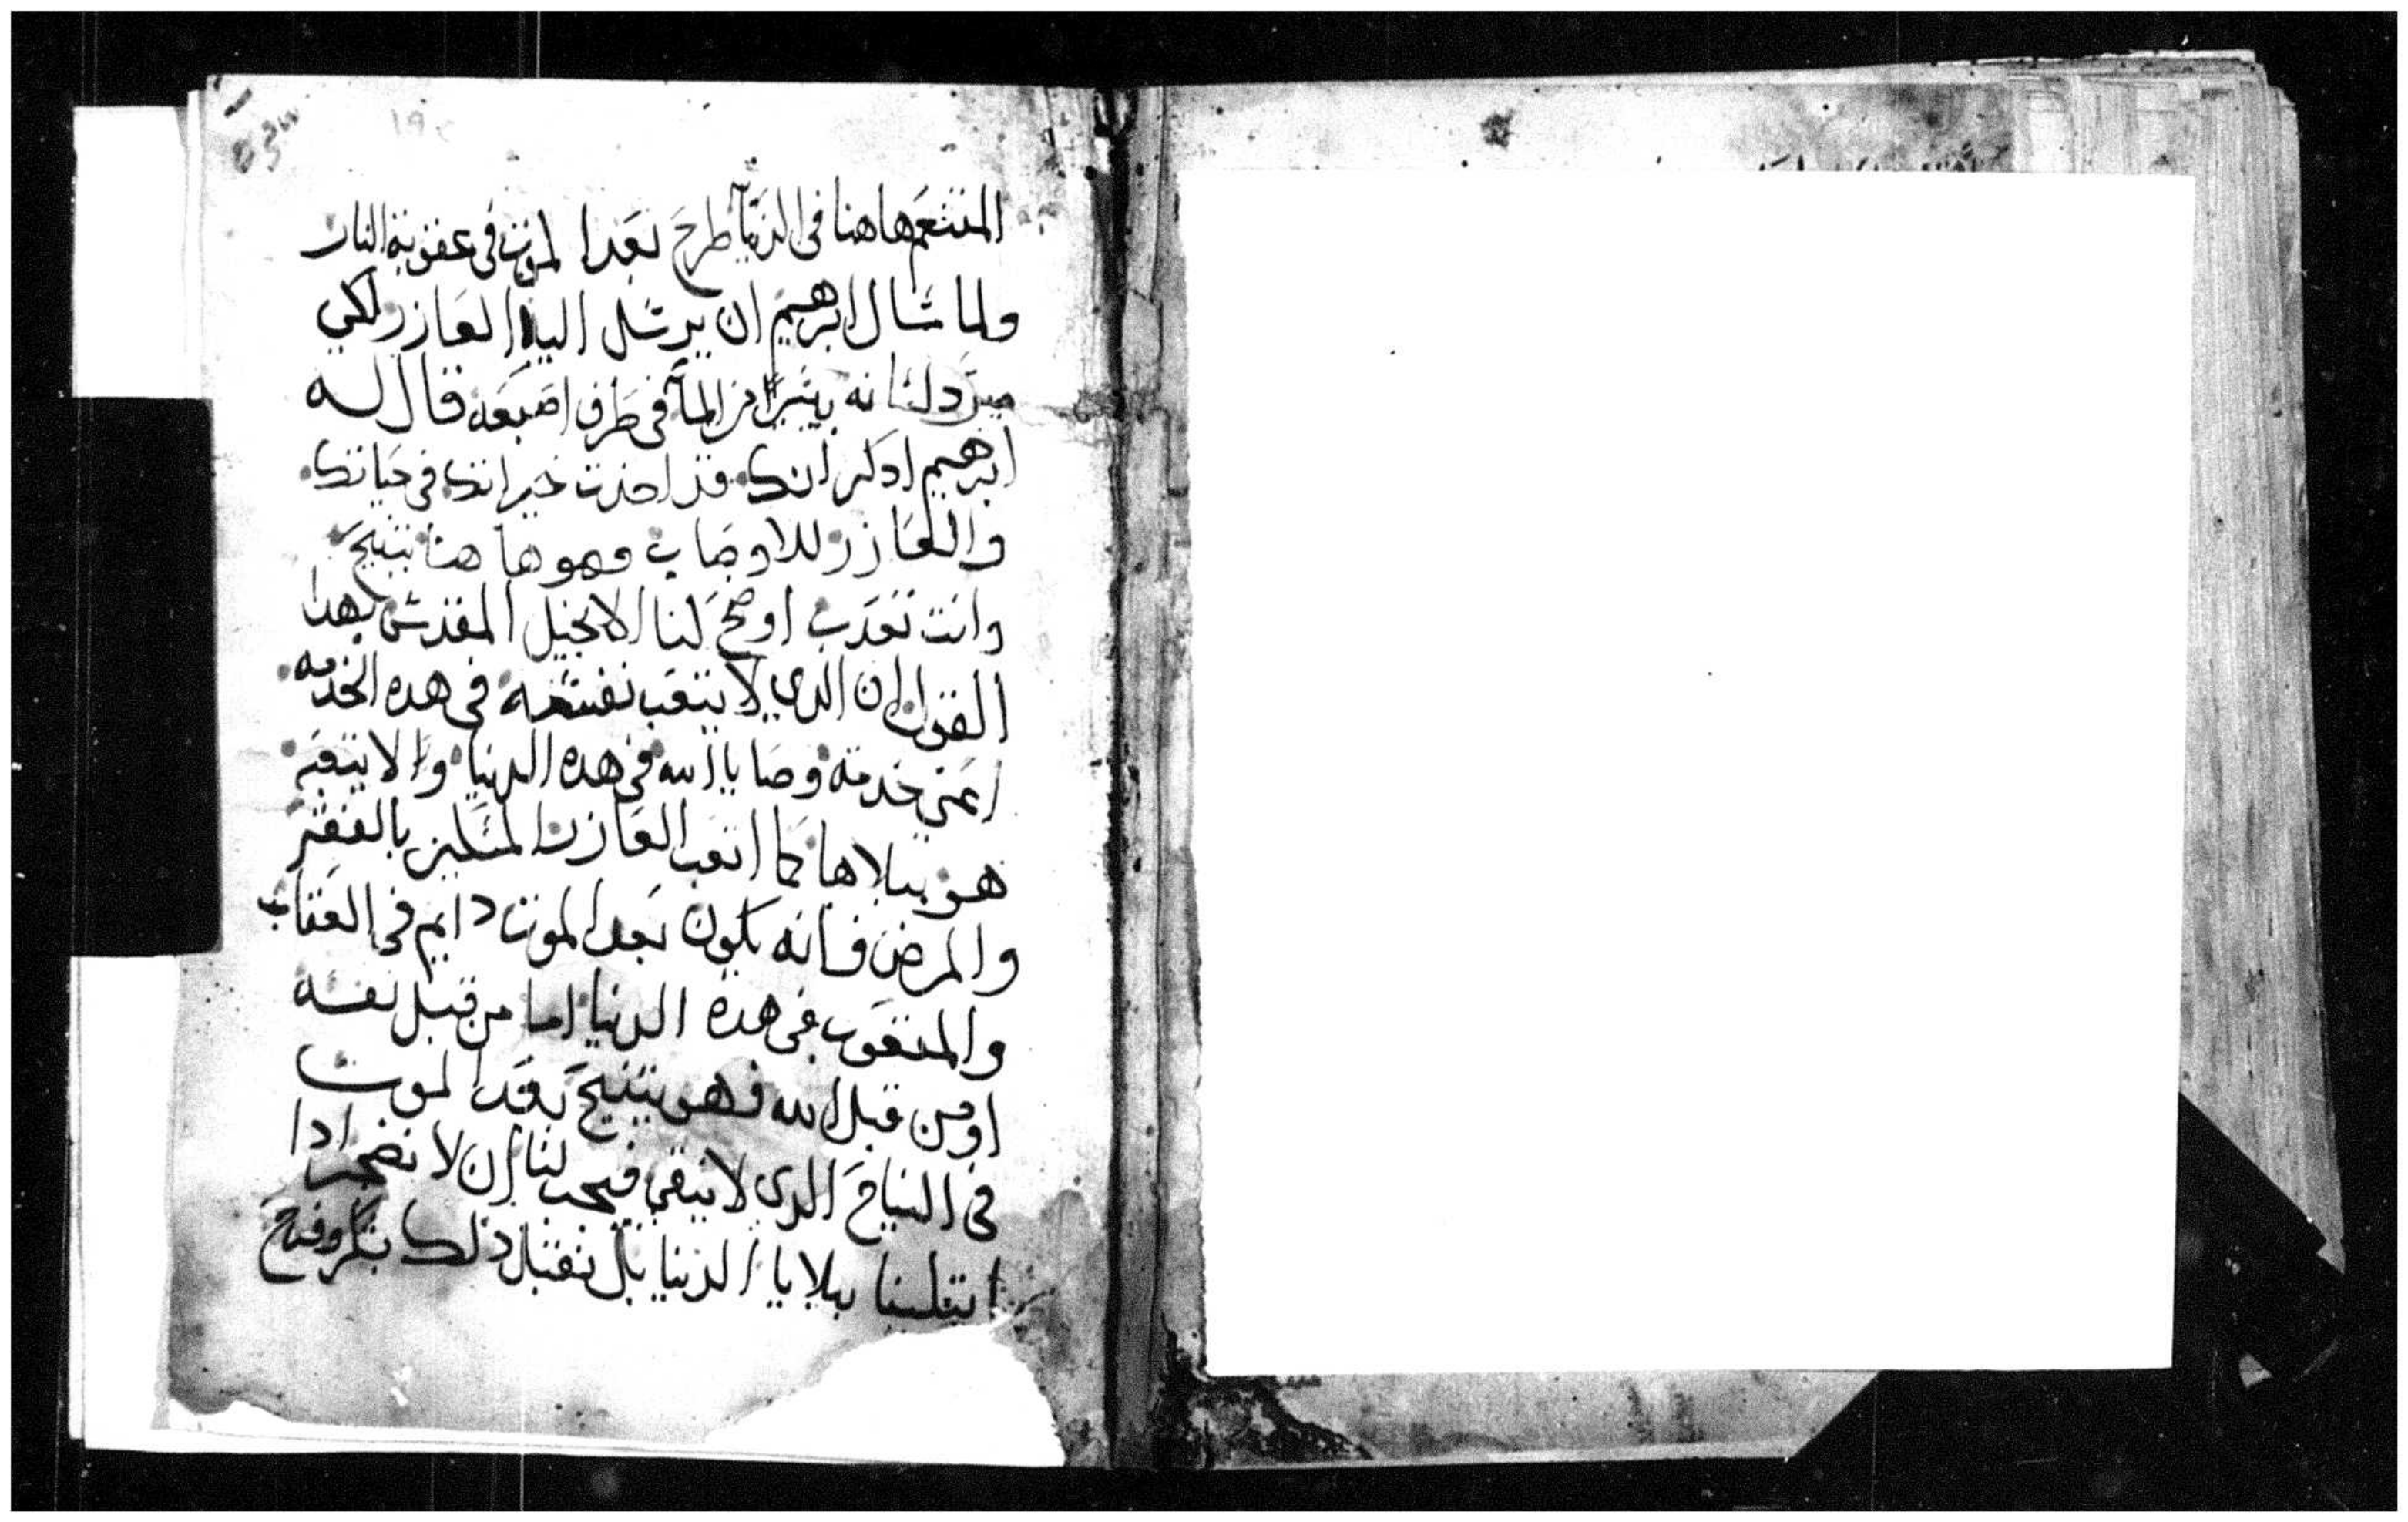 المتنعم هاهنا فى الدنيا طرح بعد الموت فى عقوبة النار
ولما سال ابرهيم ان يرسل اليه العازر لكى
يبرد لسانه بيسير من المآ فى طرف اصبعه قال له
ابرهيم ادكر انك قد اخذت خيراتك فى حياتك
والعازر للاوصاب وهو هاهنا يتنيح
وانت تعدب اوضح لنا الانجيل المقدس بهدا
القول ان الدي لا يتعب نفسه فى هده الخدمه
اعني خدمة وصايا الله فى هده الدنيا والا يتعبه
هو ببلاها كما اتعب العازر المسكين بالفقر
والمرض فانه يكون بعد الموت دايم فى العقاب
والمتعوب فى هذه الدنيا اما من قبل نفسه
او من قبل الله فهو يتنيح بعد الموت
فى النياح الدي لا يبقى فيجب لنا ان لا نضجر ادا
ابتلينا ببلايا الدنيا بل نقبل ذلك بشكر وفرح